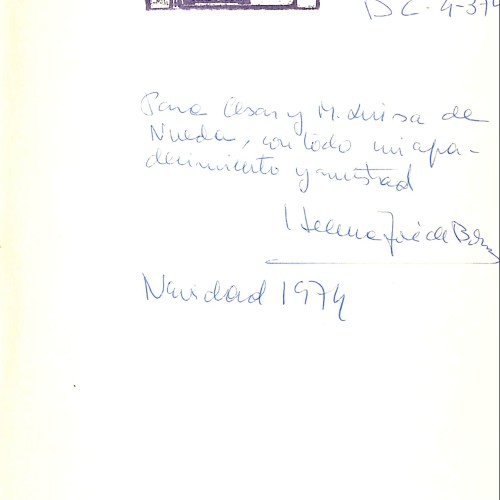 DC-4-374
Para Cesar y M. Luisa de
Nueda, con todo mi agra-
decimiento y amistad
Navidad 1974